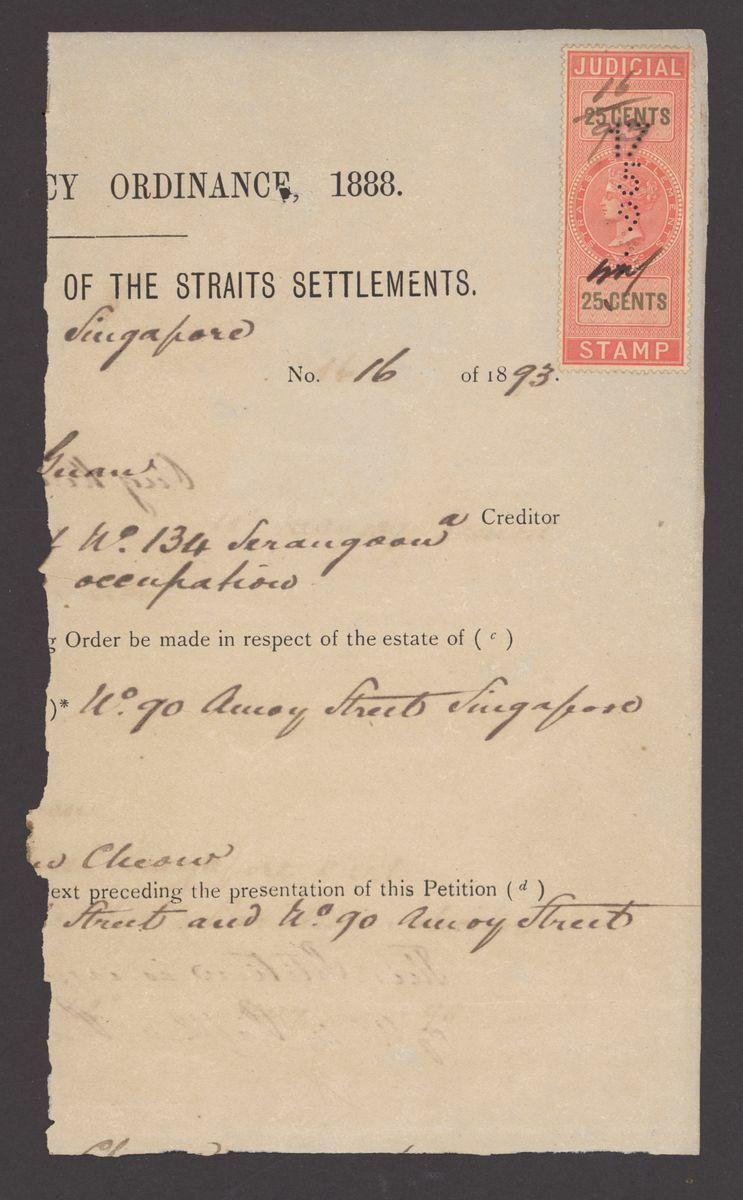 JUDICIAL
16
25 CENTS
STRAITS SETTLEMENTS
25 CENTS
STAMP
CY ORDINANCE, 1888.
OF THE STRAITS SETTLEMENTS.
Singapore
No. 16 of 1893.
Guan
a Creditor
No. 134 Serangoon
occupation
g Order be made in respect of the estate of ( c )
)* No. 90 Amoy Street Singapore
Cheow
ext preceding the presentation of this Petition ( d )
Street and No. 90 Amoy Street